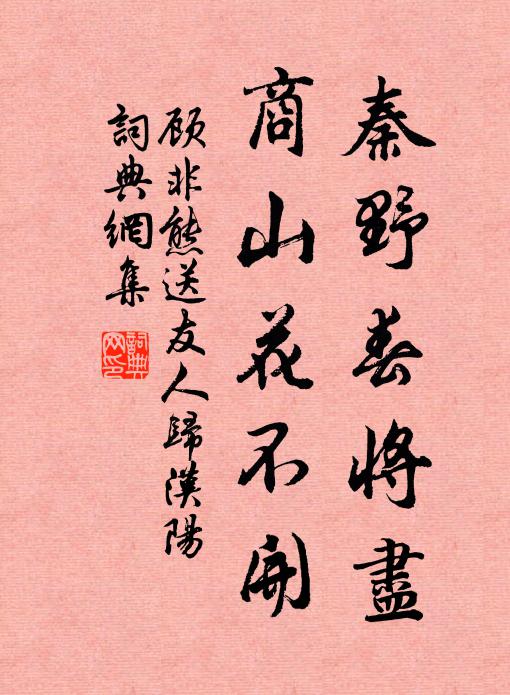 秦野春將盡
商山花不開
顧非熊送友人歸漢陽
詞典網集
詞典
网印